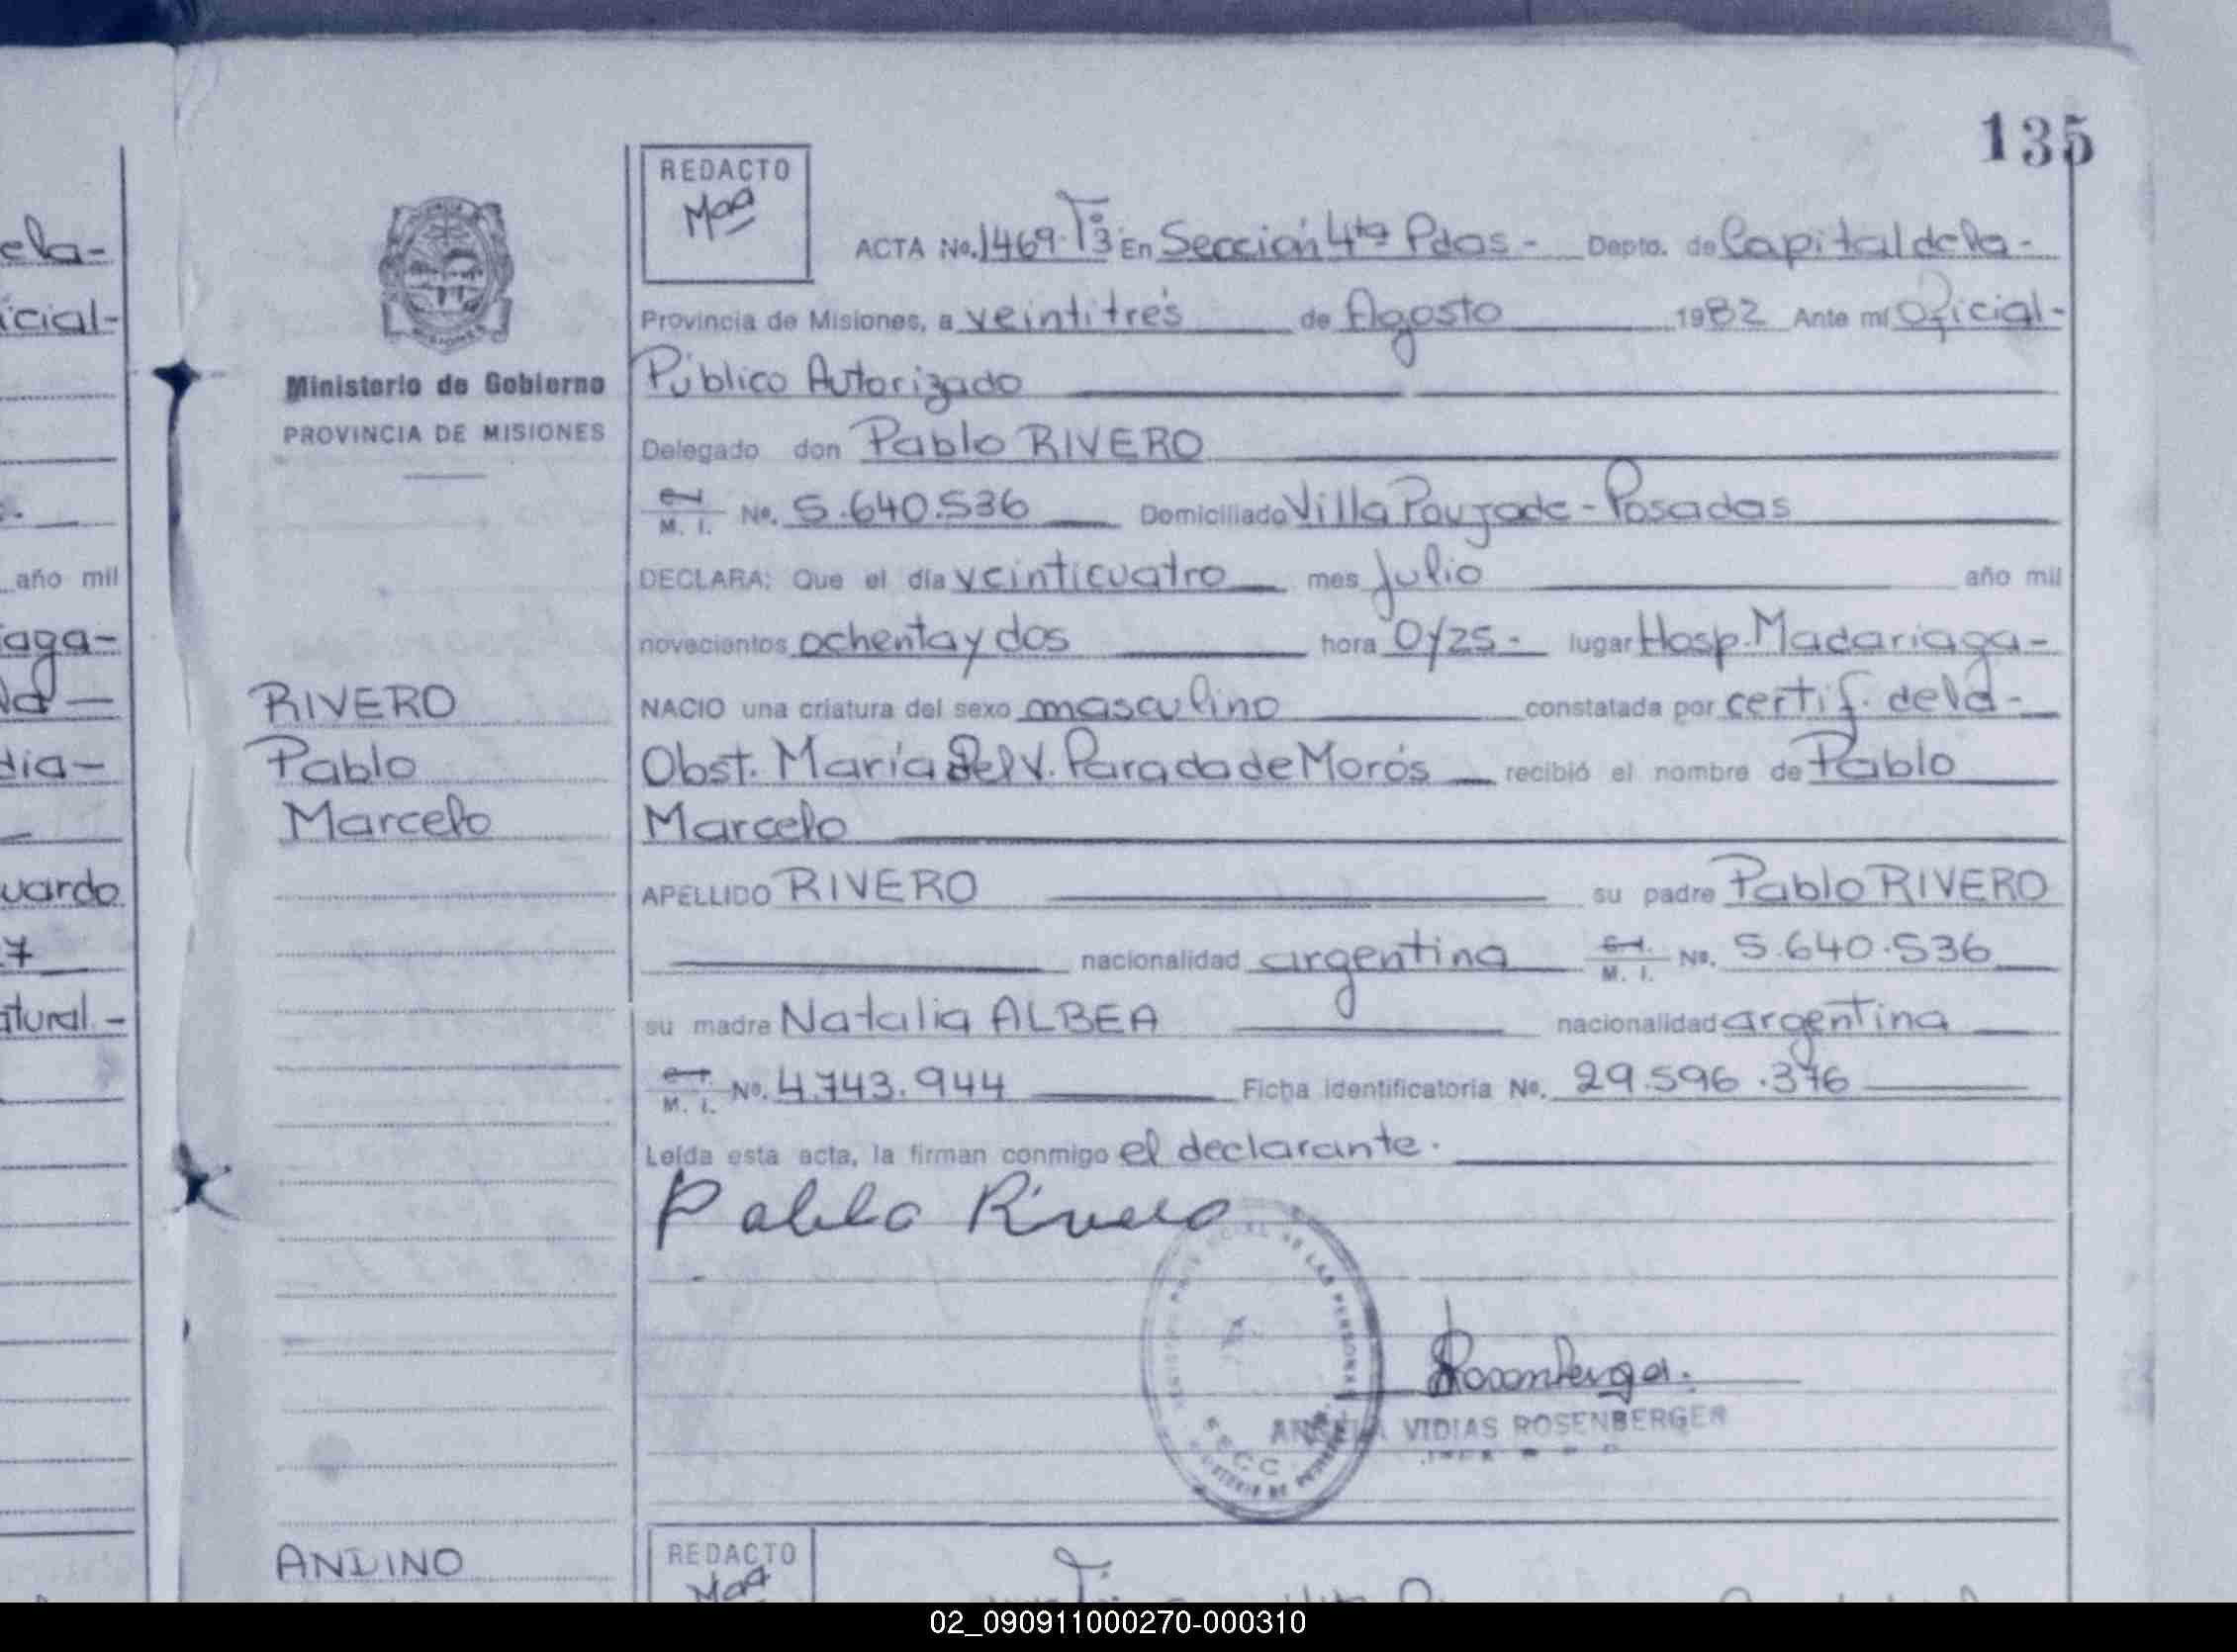 135
REDACTO
ACTA No. 1469. Tº3 En Sección 4ta Pdas - Depto. de Capital de la -
Provincia de Misiones, a veintitrés de Agosto 1982 Ante mí Oficial -
Público Autorizado
Delegado don Pablo RIVERO
M. I. No. 5.640.536 Domiciliado Villa Poujade - Posadas
DECLARA: Que el día veinticuatro mes Julio año mil
novecientos ochenta y dos hora 0/25 - lugar Hosp. Madariaga -
NACIO una criatura del sexo masculino constatada por certif. de la -
Obst. María del V. Parada de Morós recibió el nombre de Pablo
Marcelo
APELLIDO RIVERO su padre Pablo RIVERO
nacionalidad argentina C.I. M. I. No. 5.640.536
su madre Natalia ALBEA nacionalidad argentina
M. I. No. 4.743.944 Ficha identificatoria No. 29.596.376
Leída esta acta, la firman conmigo el declarante.
Pablo Rivero
VIDIAS ROSENBERGER
Ministerio de Gobierno
PROVINCIA DE MISIONES
RIVERO
Pablo
Marcelo
ANDINO
REDACTO
ela-
icial-
año mil
aga-
la -
dia-
uardo
7
atural -
02_090911000270-000310